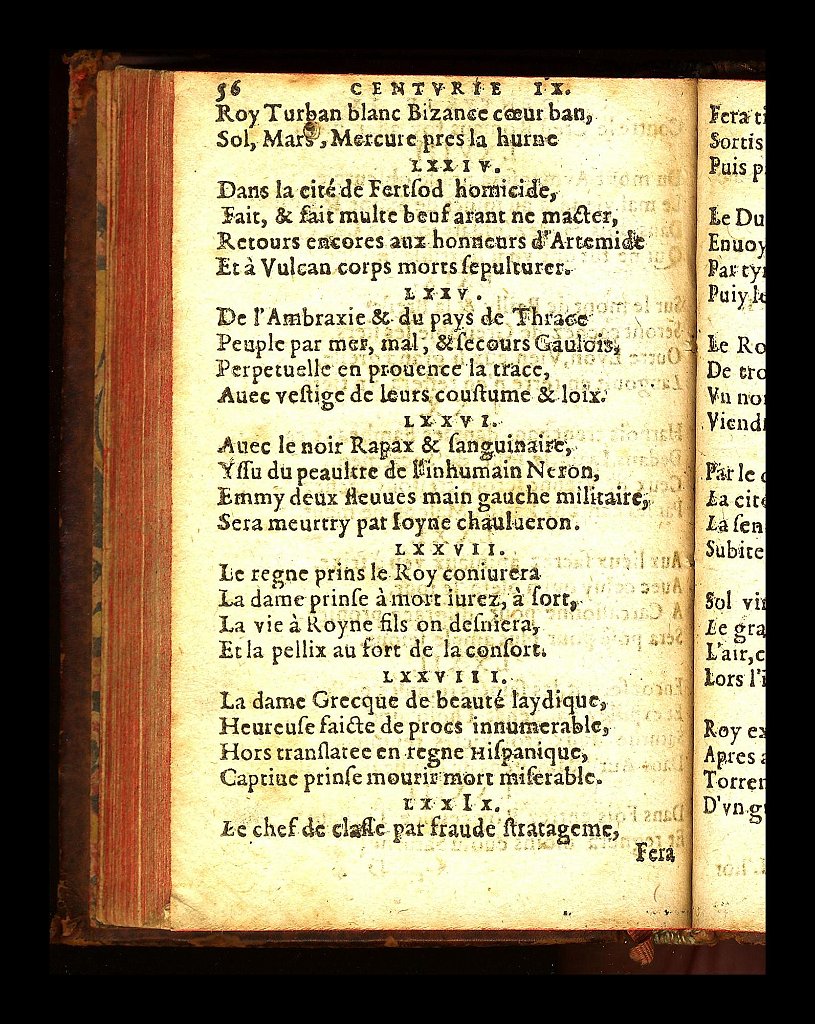 56 CENTVRIE IX.
Roy Turban blanc Bizance cœur ban,
Sol, Mars, Mercure pres la hurne
LXXIV.
Dans la cité de Fertſod homicide,
Fait, & fait multe beuf arant ne macter,
Retours encores aux honneurs d'Artemide
Et à Vulcan corps morts ſepulturer.
LXXV.
De l'Ambraxie & du pays de Thrace
Peuple par mer, mal, & ſecours Gaulois,
Perpetuelle en prouence la trace,
Auec veſtige de leurs couſtume & loix.
LXXVI.
Auec le noir Rapax & ſanguinaire,
Yſſu du peaultre de l'inhumain Neron,
Emmy deux fleuues main gauche militaire,
Sera meurtry par Ioyne chaulueron.
LXXVII.
Le regne prins le Roy coniurera
La dame prinſe à mort iurez, à ſort,
La vie à Royne fils on deſniera,
Et la pellix au fort de la conſort.
LXXVIII.
La dame Grecque de beauté laydique,
Heureuſe faicte de procs innumerable,
Hors tranſlatee en regne Hiſpanique,
Captiue prinſe mourir mort miſerable.
LXXIX.
Le chef de claſſe par fraude ſtratageme,
Fera
Fera ti
Sortis
Puis p
Le Du
Enuoy
Par tyr
Puiy le
Le Ro
De tro
Vn no
Viend
Par le
La cité
La ſen
Subite
Sol vi
Le gra
L'air, c
Lors l'i
Roy ex
Apres a
Torren
D'vn g